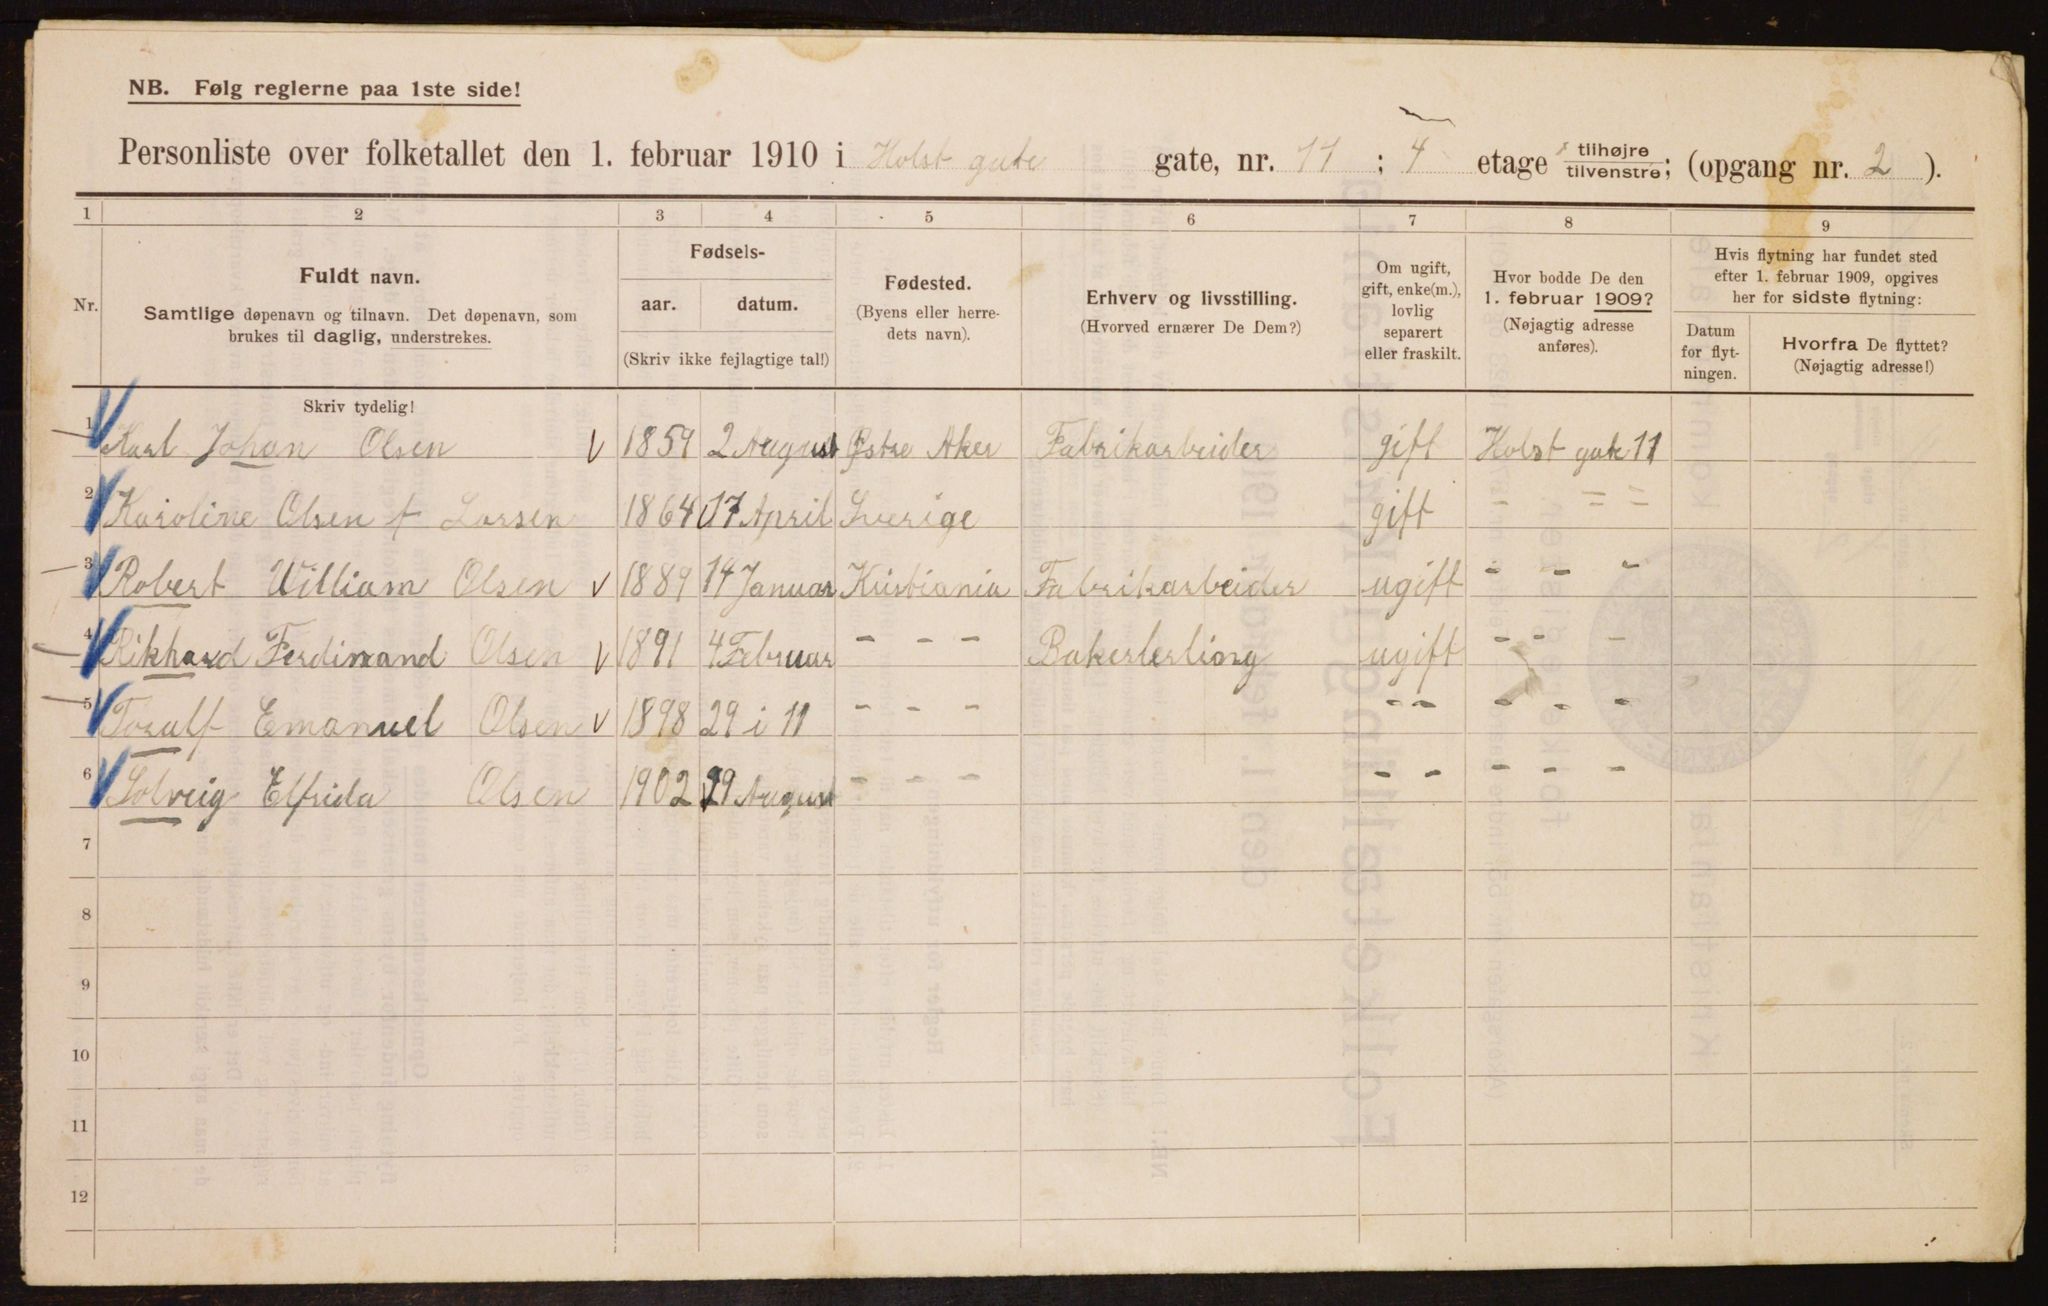 NB. Følg reglerne paa 1ste side!
Personliste over folketallet den 1. februar 1910 i Holst gate gate, nr. 11 ; 4 etage tilhøjre tilvenstre; (opgang nr. 2 ).
1 2 3 4 5 6 7 8 9
Nr.
Fuldt navn.
Samtlige døpenavn og tilnavn. Det døpenavn, som
brukes til daglig, understrekes.
Skriv tydelig!
Fødsels-
aar. datum.
(Skriv ikke fejlagtige tal!)
Fødested.
(Byens eller herre-
dets navn).
Erhverv og livsstilling.
(Hvorved ernærer De Dem?)
Om ugift,
gift, enke(m.),
lovlig
separert
eller fraskilt.
Hvor bodde De den
1. februar 1909?
(Nøjagtig adresse
anføres).
Hvis flytning har fundet sted
efter 1. februar 1909, opgives
her for sidste flytning:
Datum
for flyt-
ningen.
Hvorfra De flyttet?
(Nøjagtig adresse!)
1 Karl Johan Olsen v 1859 2 August Østre Aker Fabrikarbeider gift Holst gate 11
2 Karoline Olsen f Larsen 1864 17 April Sverige gift - = =
3 Robert William Olsen v 1889 14 Januar Kristiania Fabrikarbeider ugift - - -
4 Rikhard Ferdinand Olsen v 1891 4 Februar - - - Bakerlerling ugift - - -
5 Toralf Emanuel Olsen v 1898 29 i 11 - - - - - - - -
6 Solveig Elfrida Olsen 1902 29 August - - - - - - - -
7
8
9
10
11
12